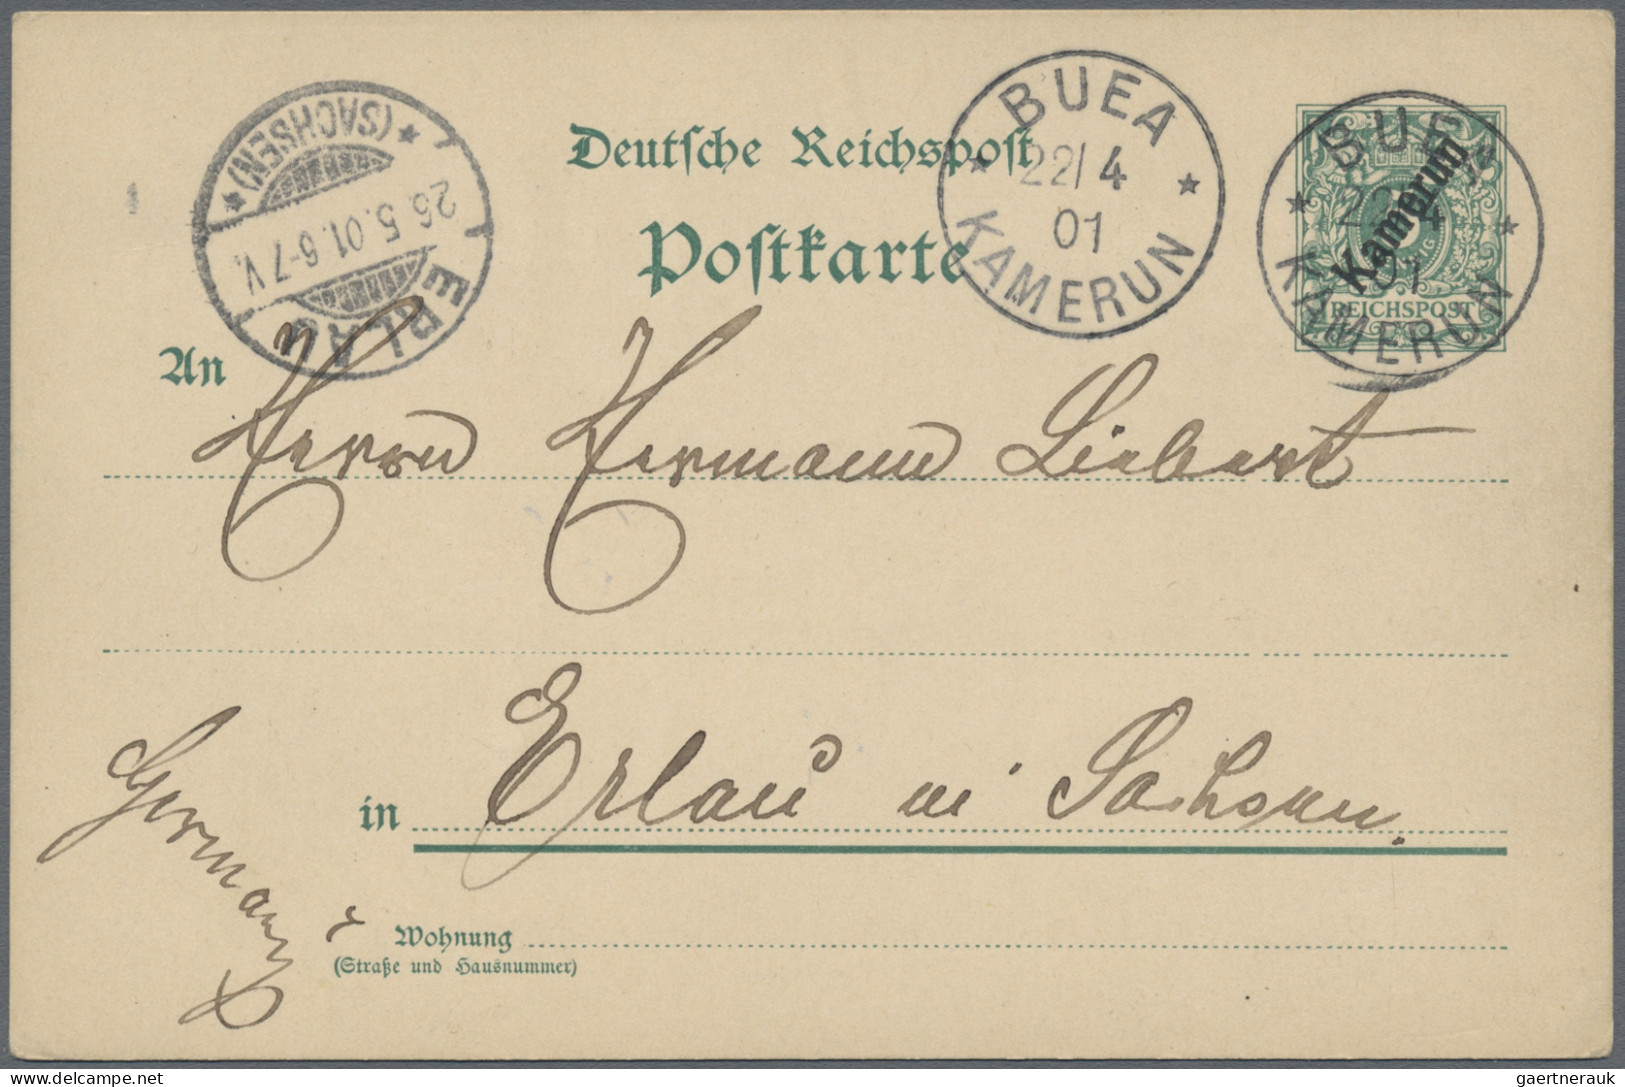 Deutsche Reichspost
Postkarte
BUEA
22/4
01
KAMERUN
BUEA
22/4
01
KAMERUN
Kamerun
5
REICHSPOST
ERLAU
(SACHSEN)
26.5.01.6-7V.
An
Herrn Hermann Liebert
in Erlau in Sachsen.
Germany
Wohnung
(Straße und Hausnummer)
gaertnerauk